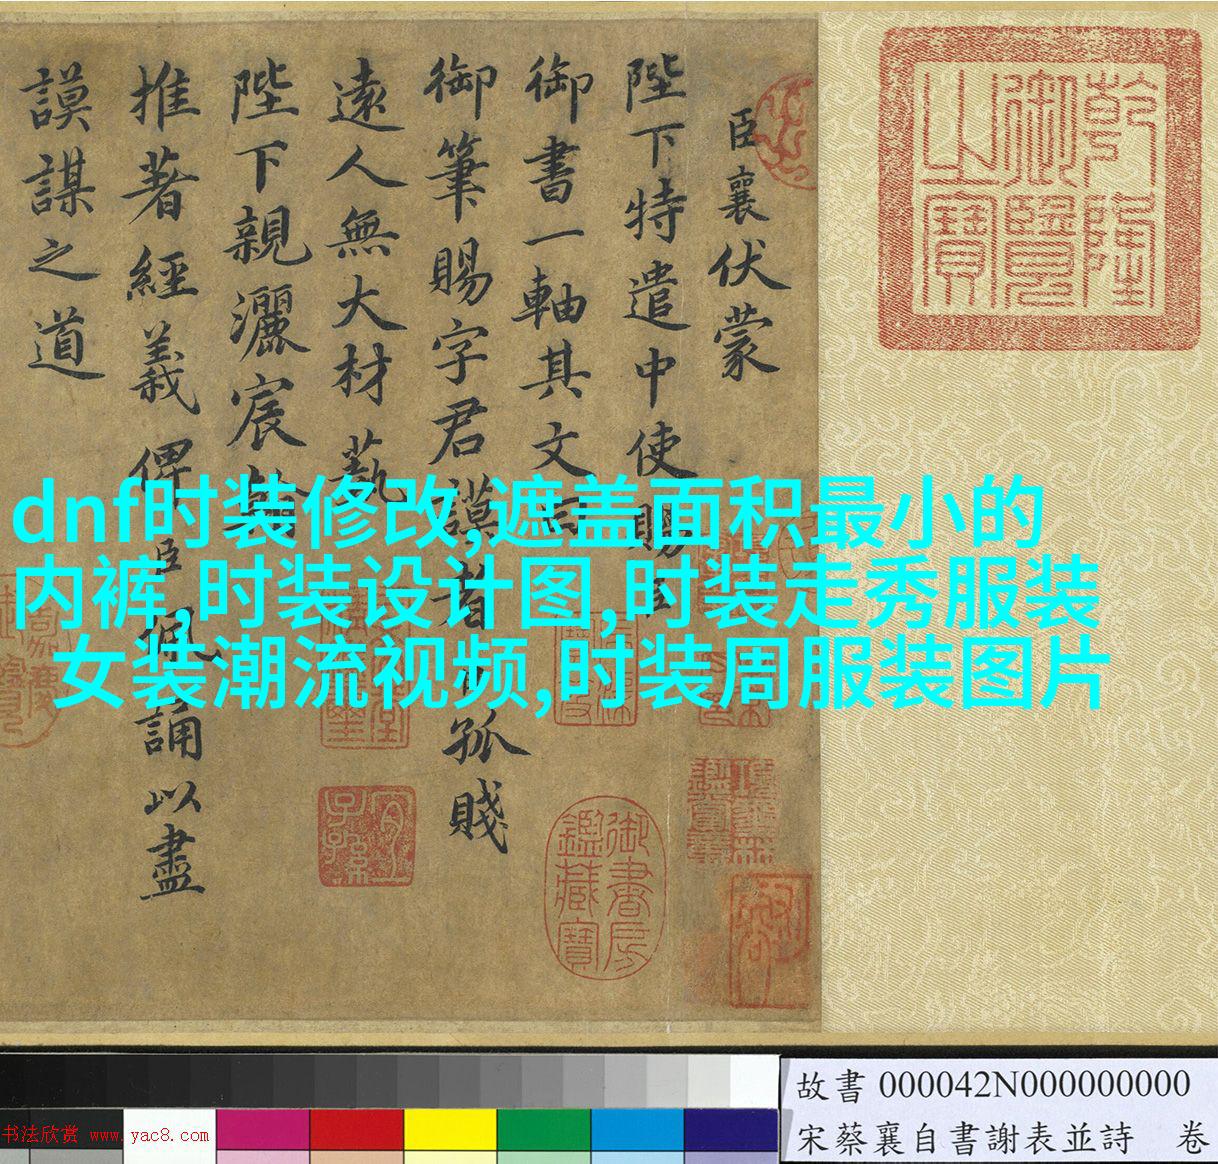 乾隆
御覽
之寶
臣襄伏蒙
陛下特遣中使賜臣
御書一軸其文曰
御筆賜字君謨者臣孤賤
遠人無大材藝
陛下親灑宸翰
推著經義俾臣佩誦以盡
謨謀之道
dnf时装修改,遮盖面积最小的
内裤,时装设计图,时装走秀服装
女装潮流视频,时装周服装图片
御書房
鑑藏寶
宜
子孫
故書 000042N000000000
宋蔡襄自書謝表並詩 卷
书法欣赏 www.yac8.com